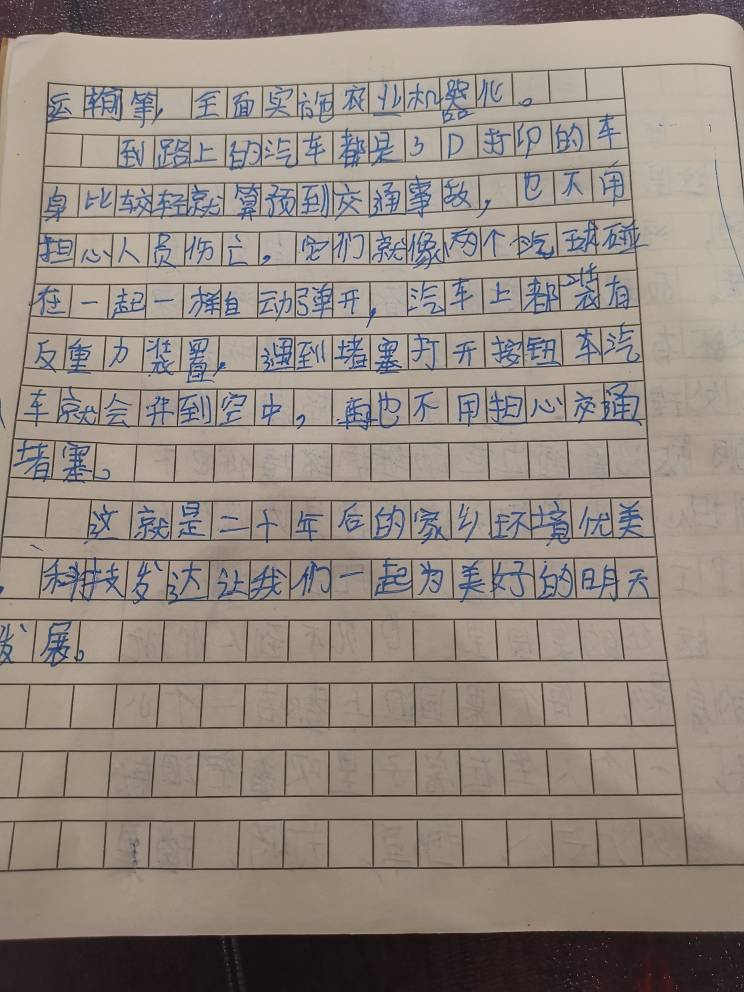 运输等，全面实施农业机器化。
到路上的汽车都是3D打印的车
身比较轻就算预到交通事故，也不用
担心人员伤亡。它们就像两个汽球碰
在一起一样自动弹开，汽车上都装有
反重力装置，遇到堵塞打开按钮车汽
车就会升到空中，再也不用担心交通
堵塞。
这就是二十年后的家乡环境优美
，科技发达让我们一起为美好的明天
发展。